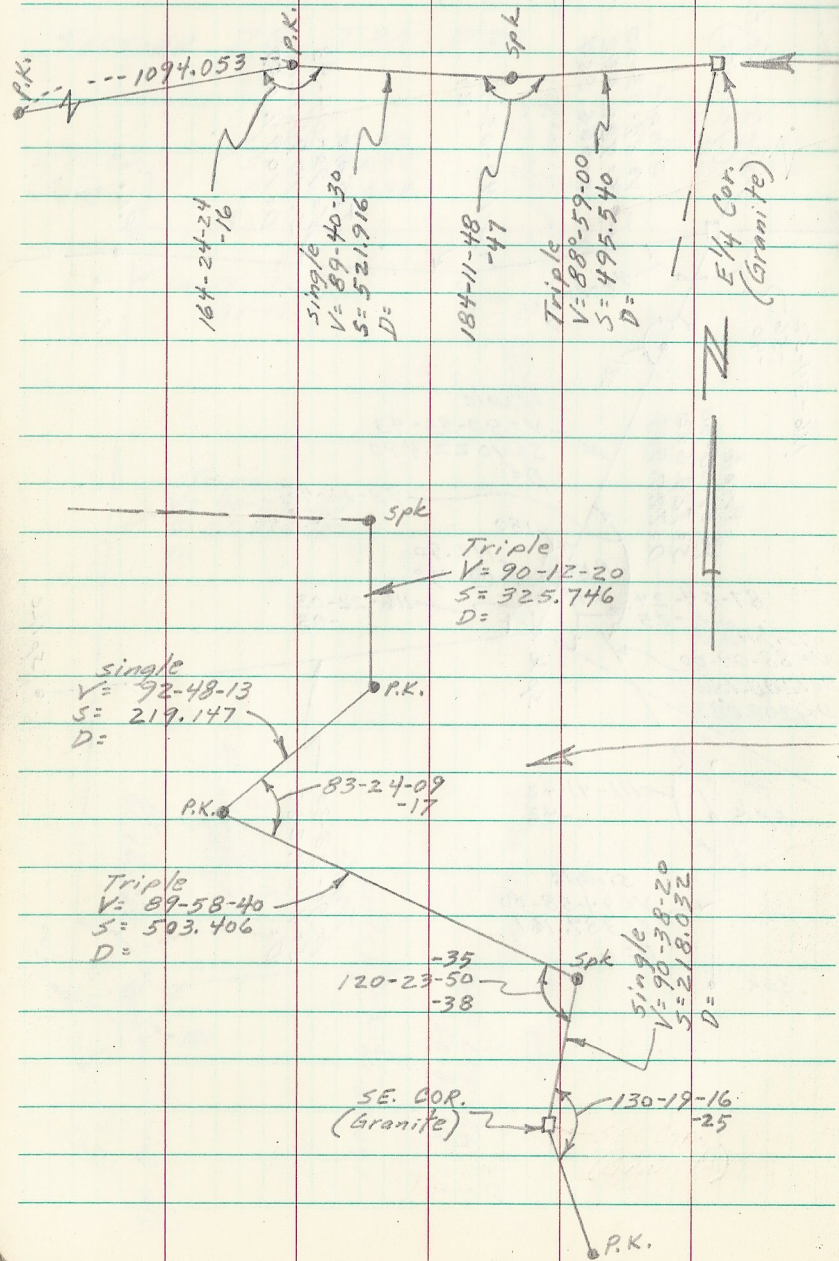 P.K.
1094.053
P.K.
Spk
164-24-24
-16
Single
V= 89-40-30
S= 521.916
D=
184-11-48
-47
Triple
V= 88°-59-00
S= 495.540
D=
E 1/4 Cor.
(Granite)
N
Spk
Triple
V= 90-12-20
S= 325.746
D=
P.K.
Single
V= 92-48-13
S= 219.147
D=
83-24-09
-17
P.K.
Triple
V= 89-58-40
S= 503.406
D=
-35
120-23-50
-38
Spk
Single
V= 90-38-20
S= 218.032
D=
SE. COR.
(Granite)
130-19-16
-25
P.K.